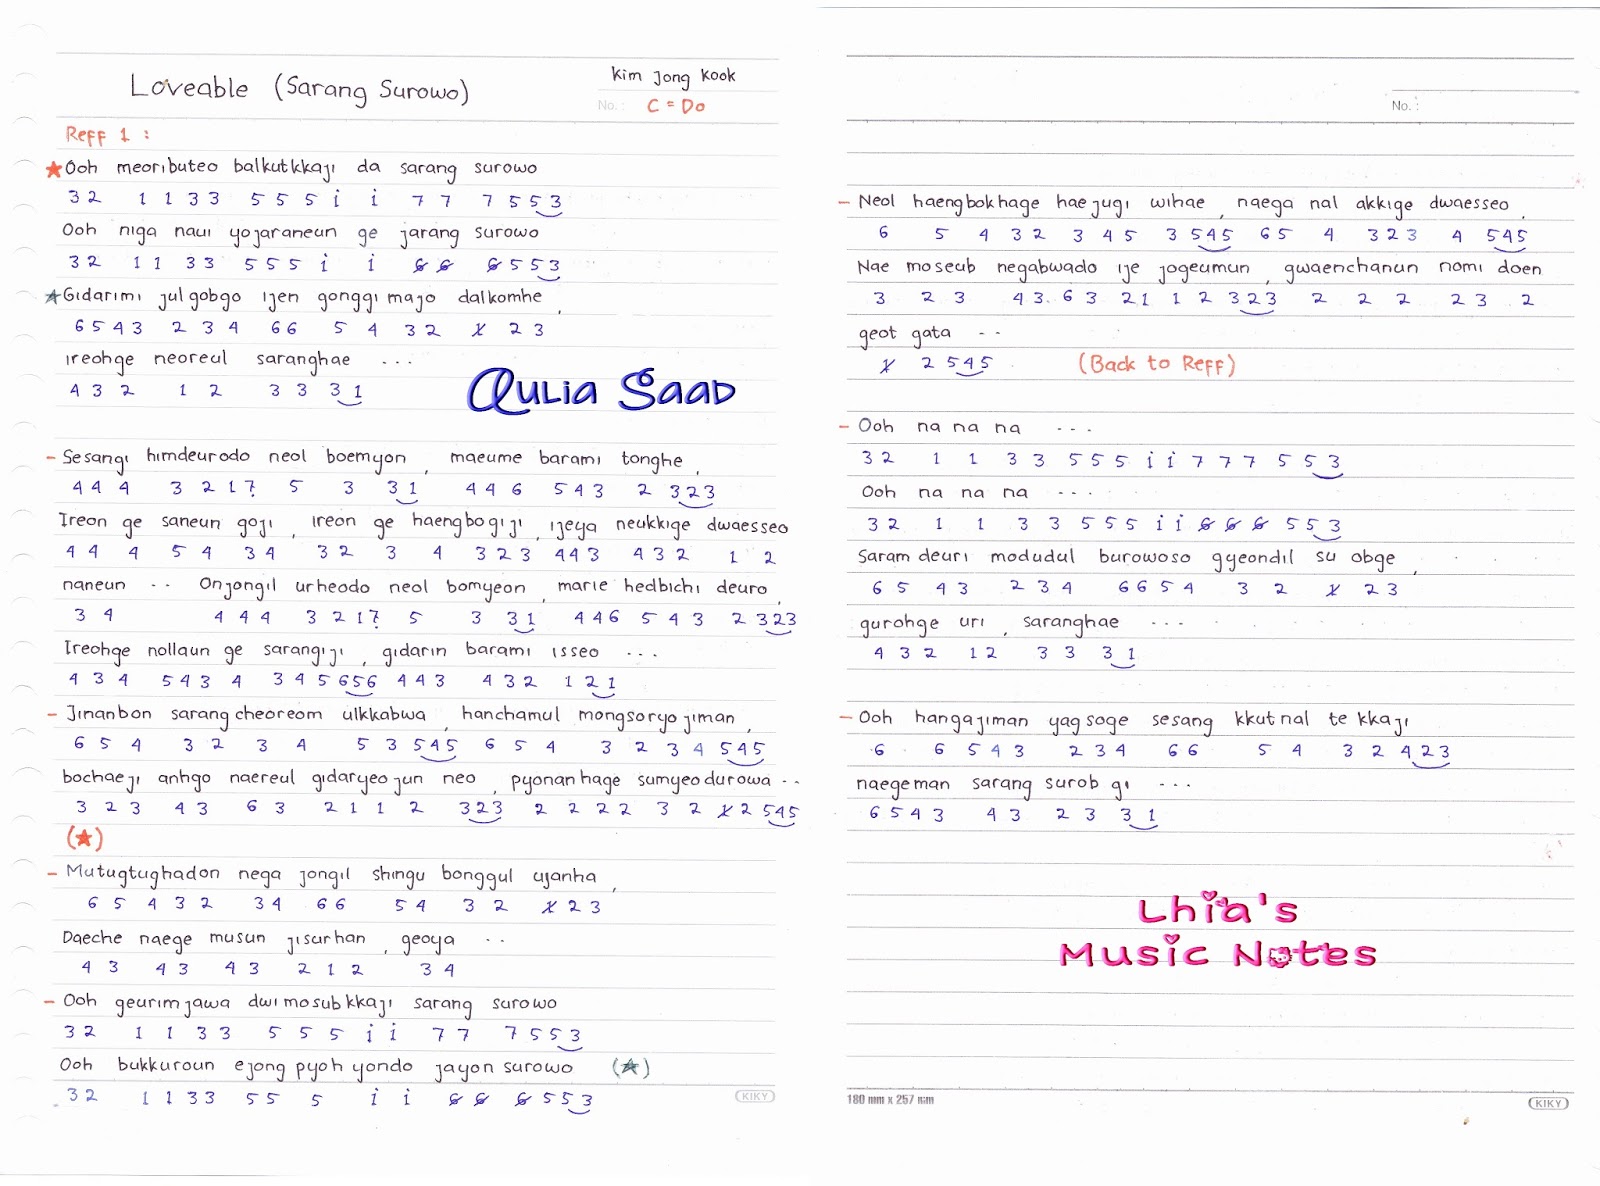 Loveable (Sarang Surowo)
Kim Jong Kook
No. : C = Do
Reff 1 :
★ Ooh meoributeo balkutkkaji da sarang surowo
3 2 1 1 3 3 5 5 5 i i 7 7 7 5 5 3
Ooh niga naui yojaraneun ge jarang surowo
3 2 1 1 3 3 5 5 5 i i 6̸ 6̸ 6̸ 5 5 3
☆ Gidarimi julgobgo ijen gonggi majo dalkomhe,
6 5 4 3 2 3 4 6 6 5 4 3 2 1̸ 2 3
Ireohge neoreul saranghae ...
4 3 2 1 2 3 3 3 1
Aulia Saad
- Sesangi himdeurodo neol boemyon , maeume barami tonghe,
4 4 4 3 2 1 7̣ 5 3 3 1 4 4 6 5 4 3 2 3 2 3
Ireon ge saneun goji , ireon ge haengbogiji , ijeya neukkige dwaesseo
4 4 4 5 4 3 4 3 2 3 4 3 2 3 4 4 3 4 3 2 1 2
naneun .. Onjongil urheodo neol bomyeon , marie hedbichi deuro,
3 4 4 4 4 3 2 1 7̣ 5 3 3 1 4 4 6 5 4 3 2 3 2 3
Ireohge nollaun ge sarangiji , gidarin barami isseo ...
4 3 4 5 4 3 4 3 4 5 6 5 6 4 4 3 4 3 2 1 2 1
- Jinanbon sarangcheoreom ulkkabwa , hanchamul mongsoryojiman,
6 5 4 3 2 3 4 5 3 5 4 5 6 5 4 3 2 3 4 5 4 5
bochaeji anhgo naereul gidaryeojun neo , pyonanhage sumyeodurowa ..
3 2 3 4 3 6 3 2 1 1 2 3 2 3 2 2 2 2 3 2 1̸ 2 5 4 5
(★)
- Mutugtughadon nega jongil shingu bonggul ujanha,
6 5 4 3 2 3 4 6 6 5 4 3 2 1̸ 2 3
Daeche naege musun jisurhan , geoya ..
4 3 4 3 4 3 2 1 2 3 4
- Ooh geurimjawa dwimosubkkaji sarang surowo
3 2 1 1 3 3 5 5 5 i i 7 7 7 5 5 3
Ooh bukkuroun ejong pyoh yondo jayon surowo (☆)
3 2 1 1 3 3 5 5 5 i i 6̸ 6̸ 6̸ 5 5 3
KIKY
No. :
- Neol haengbokhage haejugi wihae , naega nal akkige dwaesseo,
6 5 4 3 2 3 4 5 3 5 4 5 6 5 4 3 2 3 4 5 4 5
Nae moseub negabwado ije jogeumun , gwaenchanun nomi doen
3 2 3 4 3 6 3 2 1 1 2 3 2 3 2 2 2 2 3 2
geot gata ..
1̸ 2 5 4 5 (Back to Reff)
- Ooh na na na ...
3 2 1 1 3 3 5 5 5 i i 7 7 7 5 5 3
Ooh na na na ...
3 2 1 1 3 3 5 5 5 i i 6̸ 6̸ 6̸ 5 5 3
Saram deuri modudul burowoso gyeondil su obge,
6 5 4 3 2 3 4 6 6 5 4 3 2 1̸ 2 3
gurohge uri , saranghae ...
4 3 2 1 2 3 3 3 1
- Ooh hangajiman yagsoge sesang kkutnal te kkaji
6 6 5 4 3 2 3 4 6 6 5 4 3 2 4 2 3
naegeman sarang surob gi ...
6 5 4 3 4 3 2 3 3 1
Lhia's
Music Notes
180 mm x 257 mm
KIKY